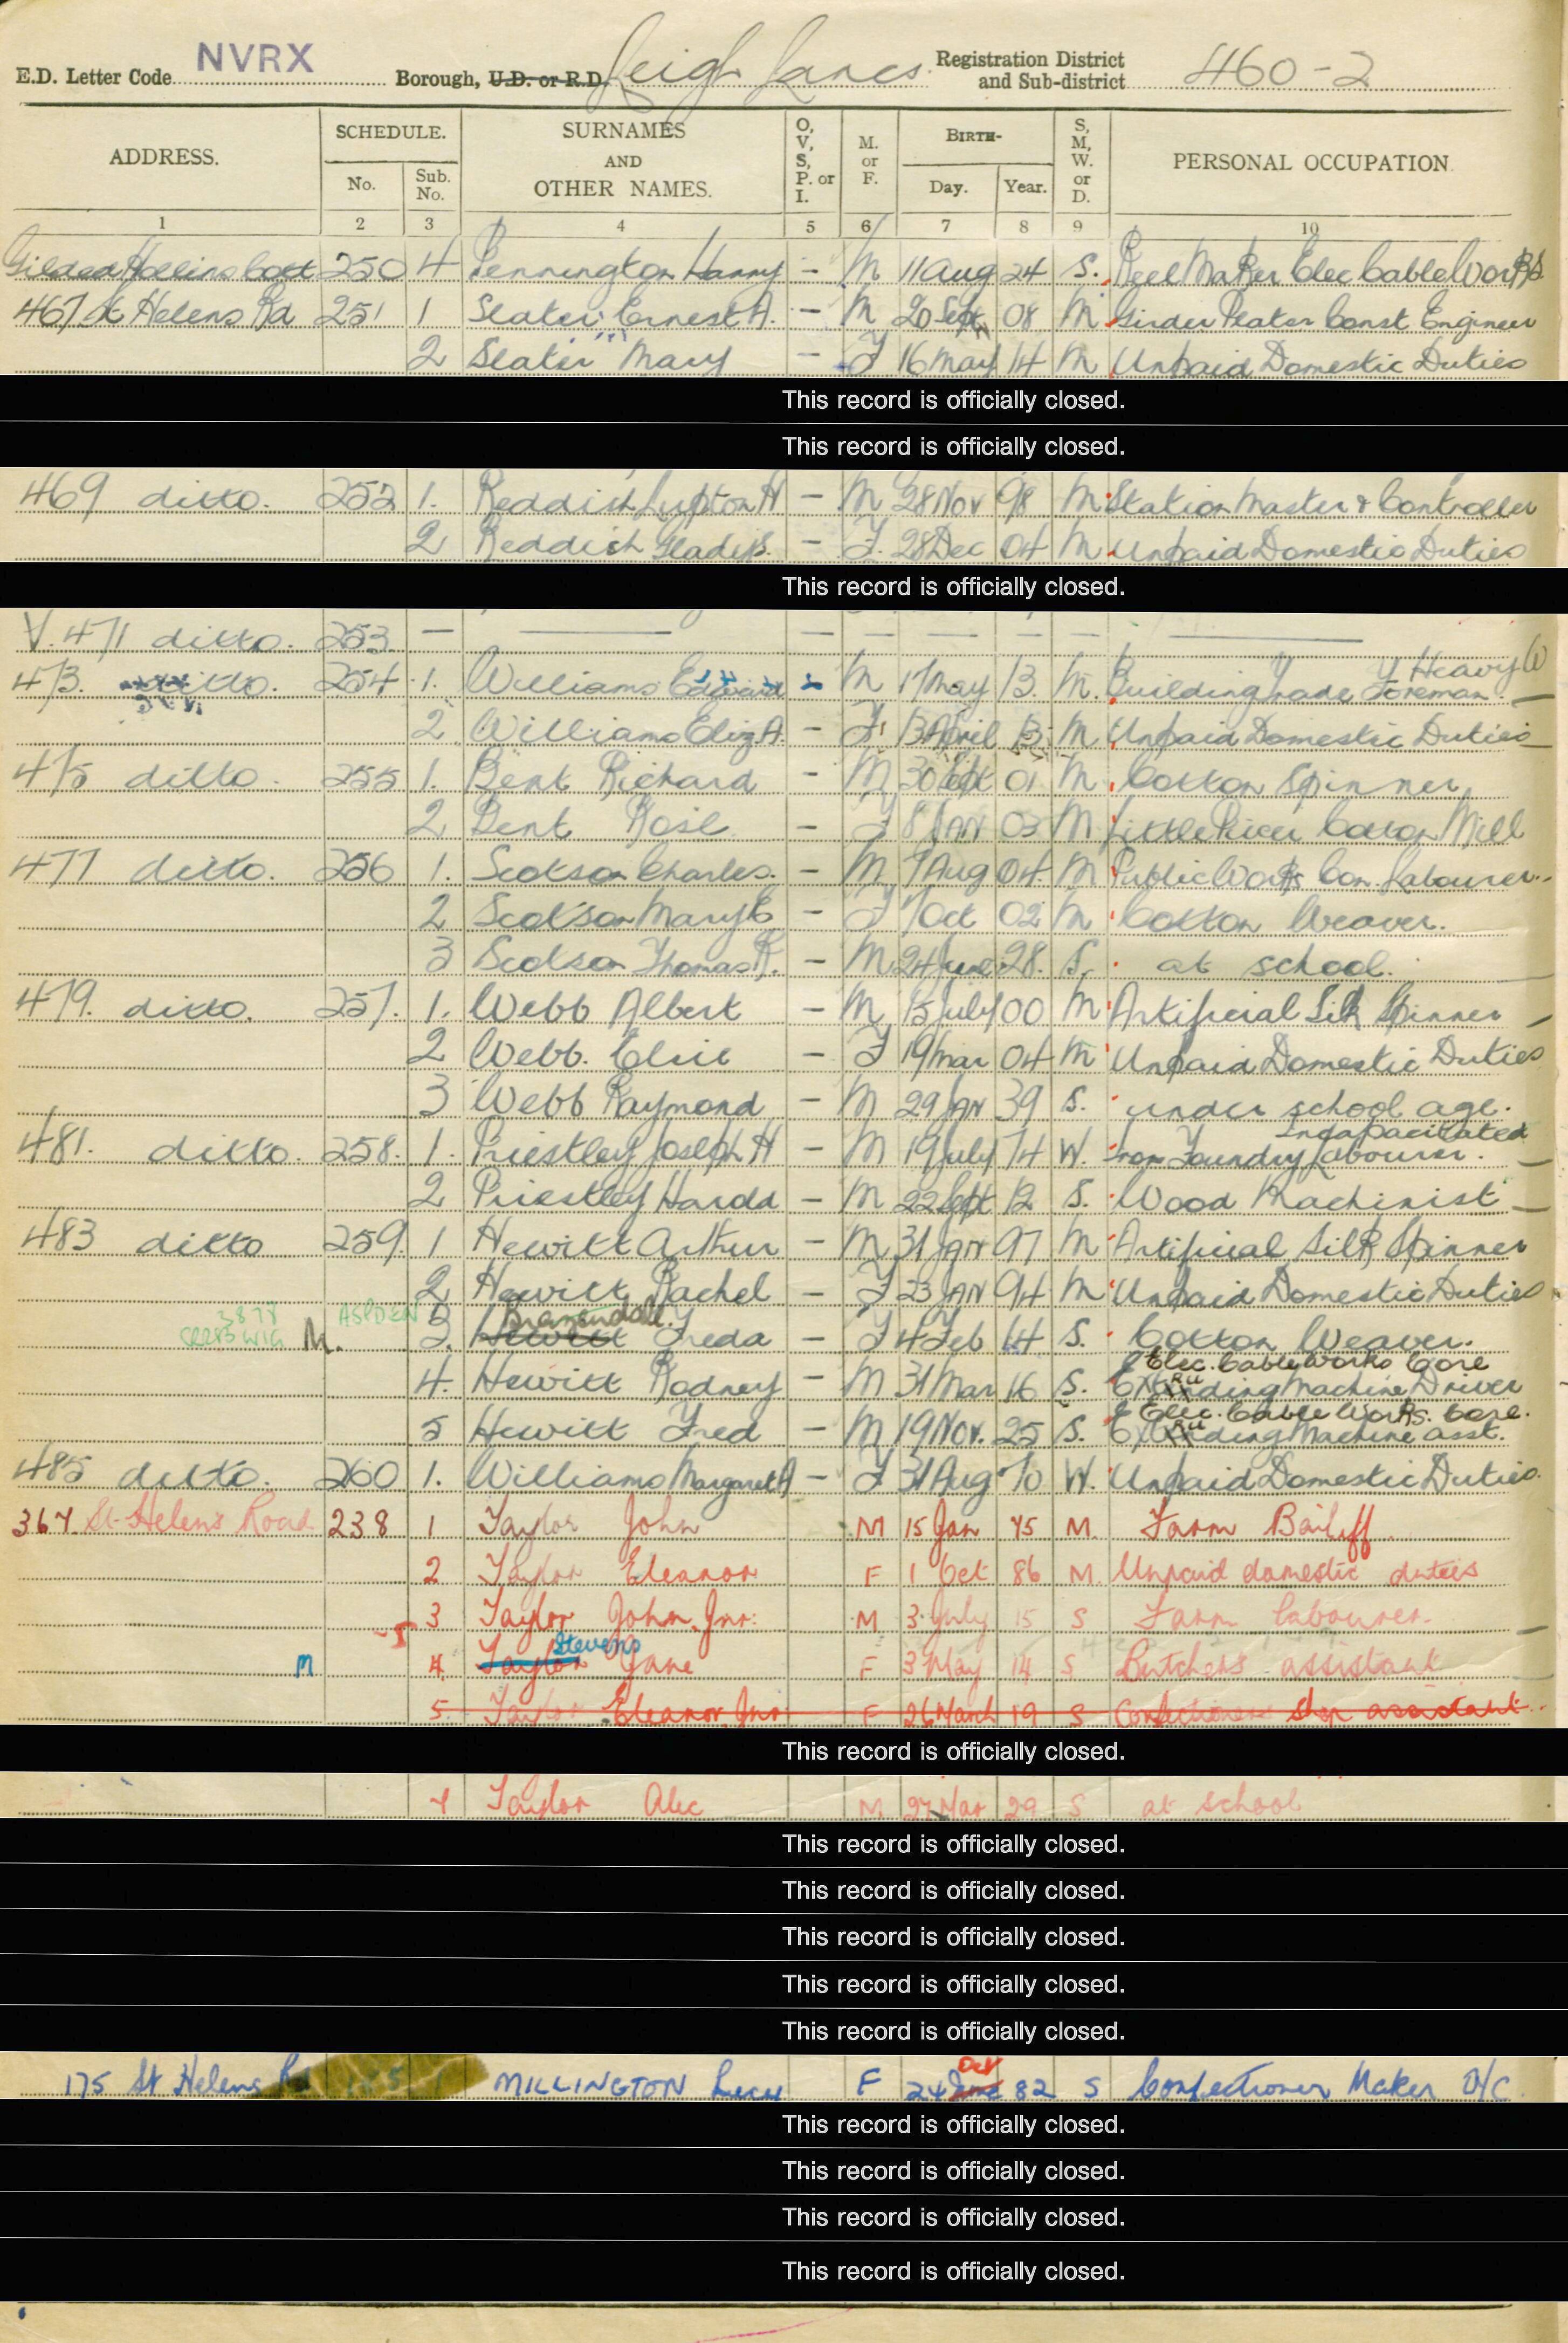 E.D. Letter Code NVRX Borough, U.D. or R.D. Leigh Lancs. Registration District and Sub-district 460-2
ADDRESS. SCHEDULE. No. Sub. No. SURNAMES AND OTHER NAMES. O, V, S, P. or I. M. or F. BIRTH- Day. Year. S, M, W. or D. PERSONAL OCCUPATION
1 2 3 4 5 6 7 8 9 10
Hollins 250 4 Pennington Harry – M 11 Aug 24 S. Reel Maker Elec Cable Works
467 St Helens Rd 251 1 Slater Ernest A. – M 20 Sept 08 M Girder Plater Const Engineer
2 Slater Mary – F 16 May 14 M Unpaid Domestic Duties
This record is officially closed.
This record is officially closed.
469 ditto. 252 1. Reddish Lupton H – M 28 Nov 98 M Station Master & Controller
2 Reddish Gladys. – F. 28 Dec 04 M Unpaid Domestic Duties
This record is officially closed.
V. 471 ditto. 253 – — – – – – – —
473. ditto. 254 1. Williams Edward – M 17 May 13. M. Building Trade Foreman. Heavy W
2 Williams Eliz A. – F. 13 April 13 M Unpaid Domestic Duties
475 ditto. 255 1. Bent Richard – M 30 Sept 01 M Cotton Spinner
2 Bent Rose – F 8 JAN 03 M Little Piecer Cotton Mill
477 ditto. 256 1. Scotson Charles. – M 7 Aug 04 M Public Works Con. Labourer.
2 Scotson Mary E – F 7 Oct 02 M Cotton Weaver.
3 Scotson Thomas R. – M 24 June 28. S. at school.
479. ditto. 257. 1. Webb Albert – M 15 July 00 M Artificial Silk Spinner
2 Webb. Elsie – F 19 Mar 04 M Unpaid Domestic Duties
3 Webb Raymond – M 29 JAN 39 S. under school age.
481. ditto. 258. 1. Priestley Joseph H – M 19 July 74 W. Iron Foundry Labourer. Incapacitated
2 Priestley Harold – M 22 Sept 12 S. Wood Machinist
483 ditto 259. 1 Hewitt Arthur – M 31 JAN 97 M Artificial Silk Spinner
2 Hewitt Rachel – F 23 JAN 94 M Unpaid Domestic Duties
3878 M. ASPDEN 3. Hewitt Freda – F 4 Feb 14 S. Cotton Weaver.
4. Hewitt Rodney – M 31 Mar 16 S. Elec. Cable Works Core Extruding Machine Driver
5 Hewitt Fred – M 19 Nov. 25 S. Elec. Cable Works. Core. Extruding Machine asst.
485 ditto. 260 1. Williams Margaret A – F 31 Aug 70 W. Unpaid Domestic Duties.
367 St Helens Road 238 1 Taylor John M 15 Jan 75 M. Farm Bailiff
2 Taylor Eleanor F 1 Oct 86 M. Unpaid domestic duties
3 Taylor John Jnr: M 3 July 15 S Farm labourer.
M 4. Taylor Stevens Jane F 3 May 14 S Butchers assistant
5. Taylor Eleanor Jnr F 26 March 19 S Confectioners shop assistant
This record is officially closed.
7 Taylor Alec M 27 Mar 29 S at school
This record is officially closed.
This record is officially closed.
This record is officially closed.
This record is officially closed.
This record is officially closed.
175 St Helens Rd 1 MILLINGTON F 24 Oct 82 S Confectioner Maker O/C
This record is officially closed.
This record is officially closed.
This record is officially closed.
This record is officially closed.